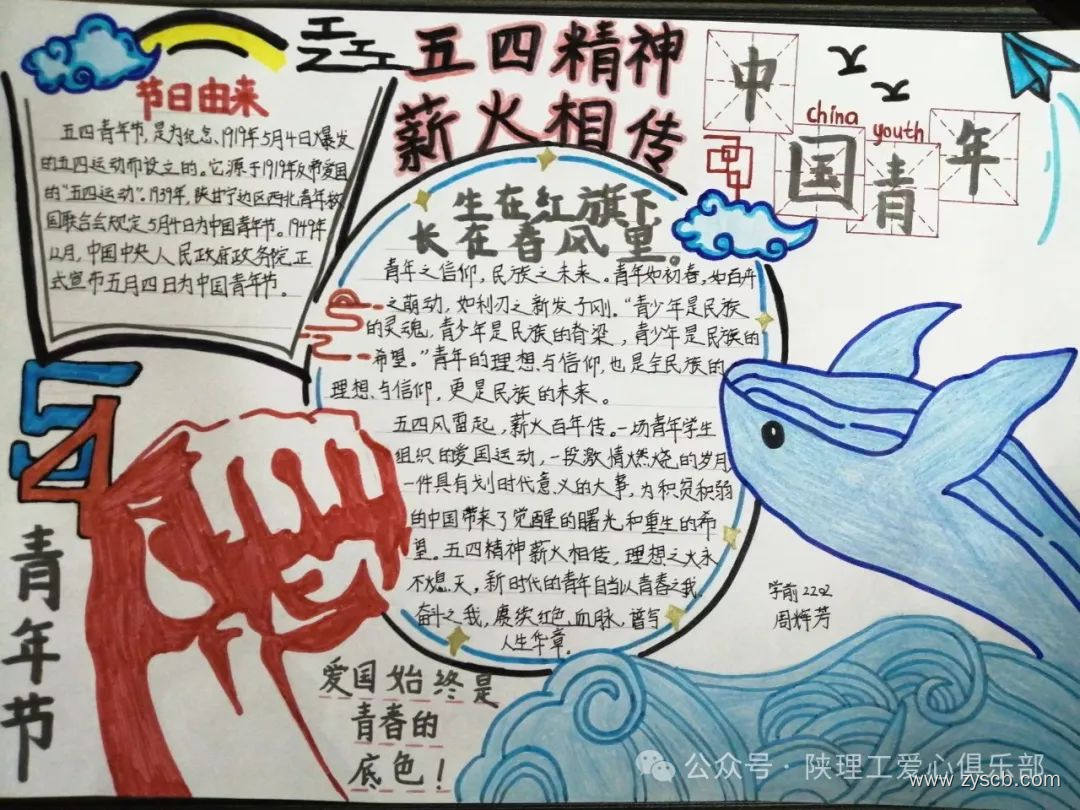 五四精神
薪火相传
节日由来
五四青年节，是为纪念1919年5月4日爆发
的五四运动而设立的。它源于1919年反帝爱国
的“五四运动”。1939年，陕甘宁边区西北青年救
国联合会规定5月4日为中国青年节。1949年
12月，中国中央人民政府政务院正
式宣布五月四日为中国青年节。
中
国
青
年
china
youth
生在红旗下
长在春风里。
青年之信仰，民族之未来。青年如初春，如百卉
之萌动，如利刃之新发于刚。“青少年是民族
的灵魂，青少年是民族的脊梁，青少年是民族的
希望。”青年的理想与信仰，也是全民族的
理想与信仰，更是民族的未来。
五四风雷起，薪火百年传。一场青年学生
组织的爱国运动，一段激情燃烧的岁月，
一件具有划时代意义的大事，为积贫积弱
的中国带来了觉醒的曙光和重生的希
望。五四精神薪火相传，理想之火永
不熄灭，新时代的青年自当以青春之我，
奋斗之我，赓续红色血脉，谱写
人生华章。
54
青年节
爱国始终是
青春的
底色！
学前2202
周辉芳
公众号·陕理工爱心俱乐部
www.zyscb.com